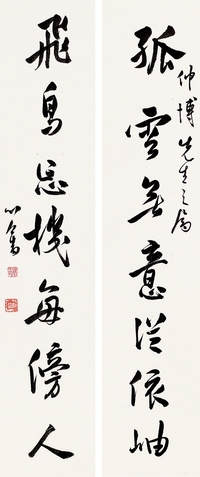 仲博先生之屬
孤雲無意從依岫
飛鳥忘機每傍人
心畬